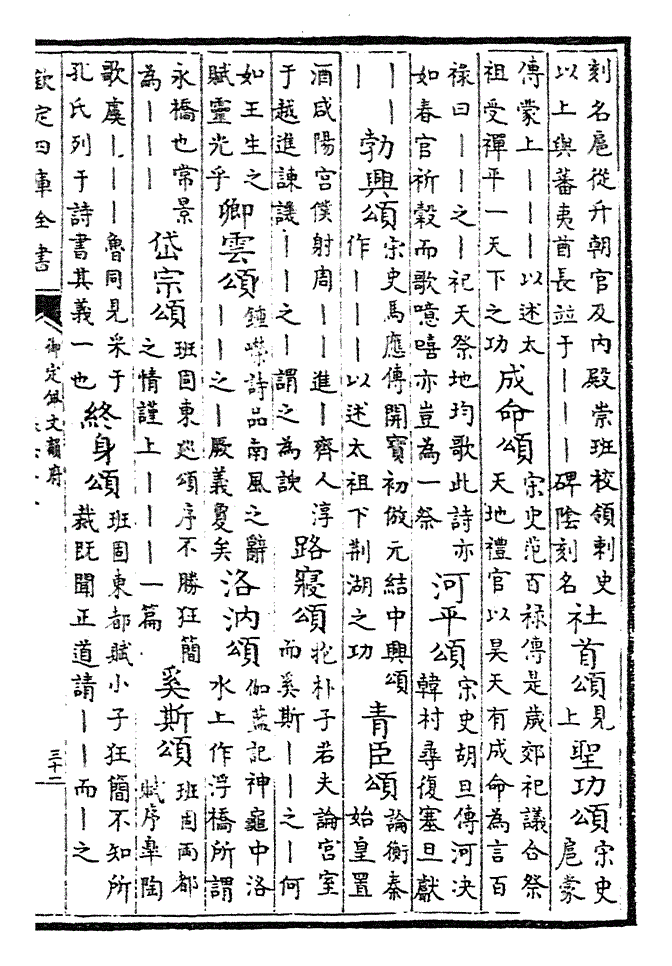 刻名扈從升朝官及内殿崇班校領刺史
以上與蕃夷酋長並于｜｜｜碑陰刻名
社首頌
見
上
聖功頌
宋史
扈蒙
傳蒙上｜｜｜以述太
祖受禪平一天下之功
成命頌
宋史范百祿傳是歲郊祀議合祭
天地禮官以昊天有成命為言百
祿曰｜｜之｜祀天祭地均歌此詩亦
如春官祈穀而歌噫嘻亦豈為一祭
河平頌
宋史胡旦傳河決
韓村尋復塞旦獻
｜｜
｜
勃興頌
宋史馬應傳開寶初倣元結中興頌
作｜｜｜以述太祖下荆湖之功
青臣頌
論衡秦
始皇置
酒咸陽宮僕射周｜｜進｜齊人淳
于越進諫譏｜｜之｜謂之為諛
路寢頌
抱朴子若夫論宮室
而奚斯｜｜之｜何
如王生之
賦靈光乎
卿雲頌
鍾嶸詩品南風之辭
｜｜之｜厥義夐矣
洛汭頌
伽藍記神龜中洛
水上作浮橋所謂
永橋也常景
為｜｜｜
岱宗頌
班固東廵頌序不勝狂簡
之情謹上｜｜｜｜一篇
奚斯頌
班固兩都
賦序臯陶
歌虞｜｜｜魯同見采于
孔氏列于詩書其義一也
終身頌
班固東都賦小子狂簡不知所
裁既聞正道請｜｜而｜之
欽定四庫全書
御定佩文韻府
三十二